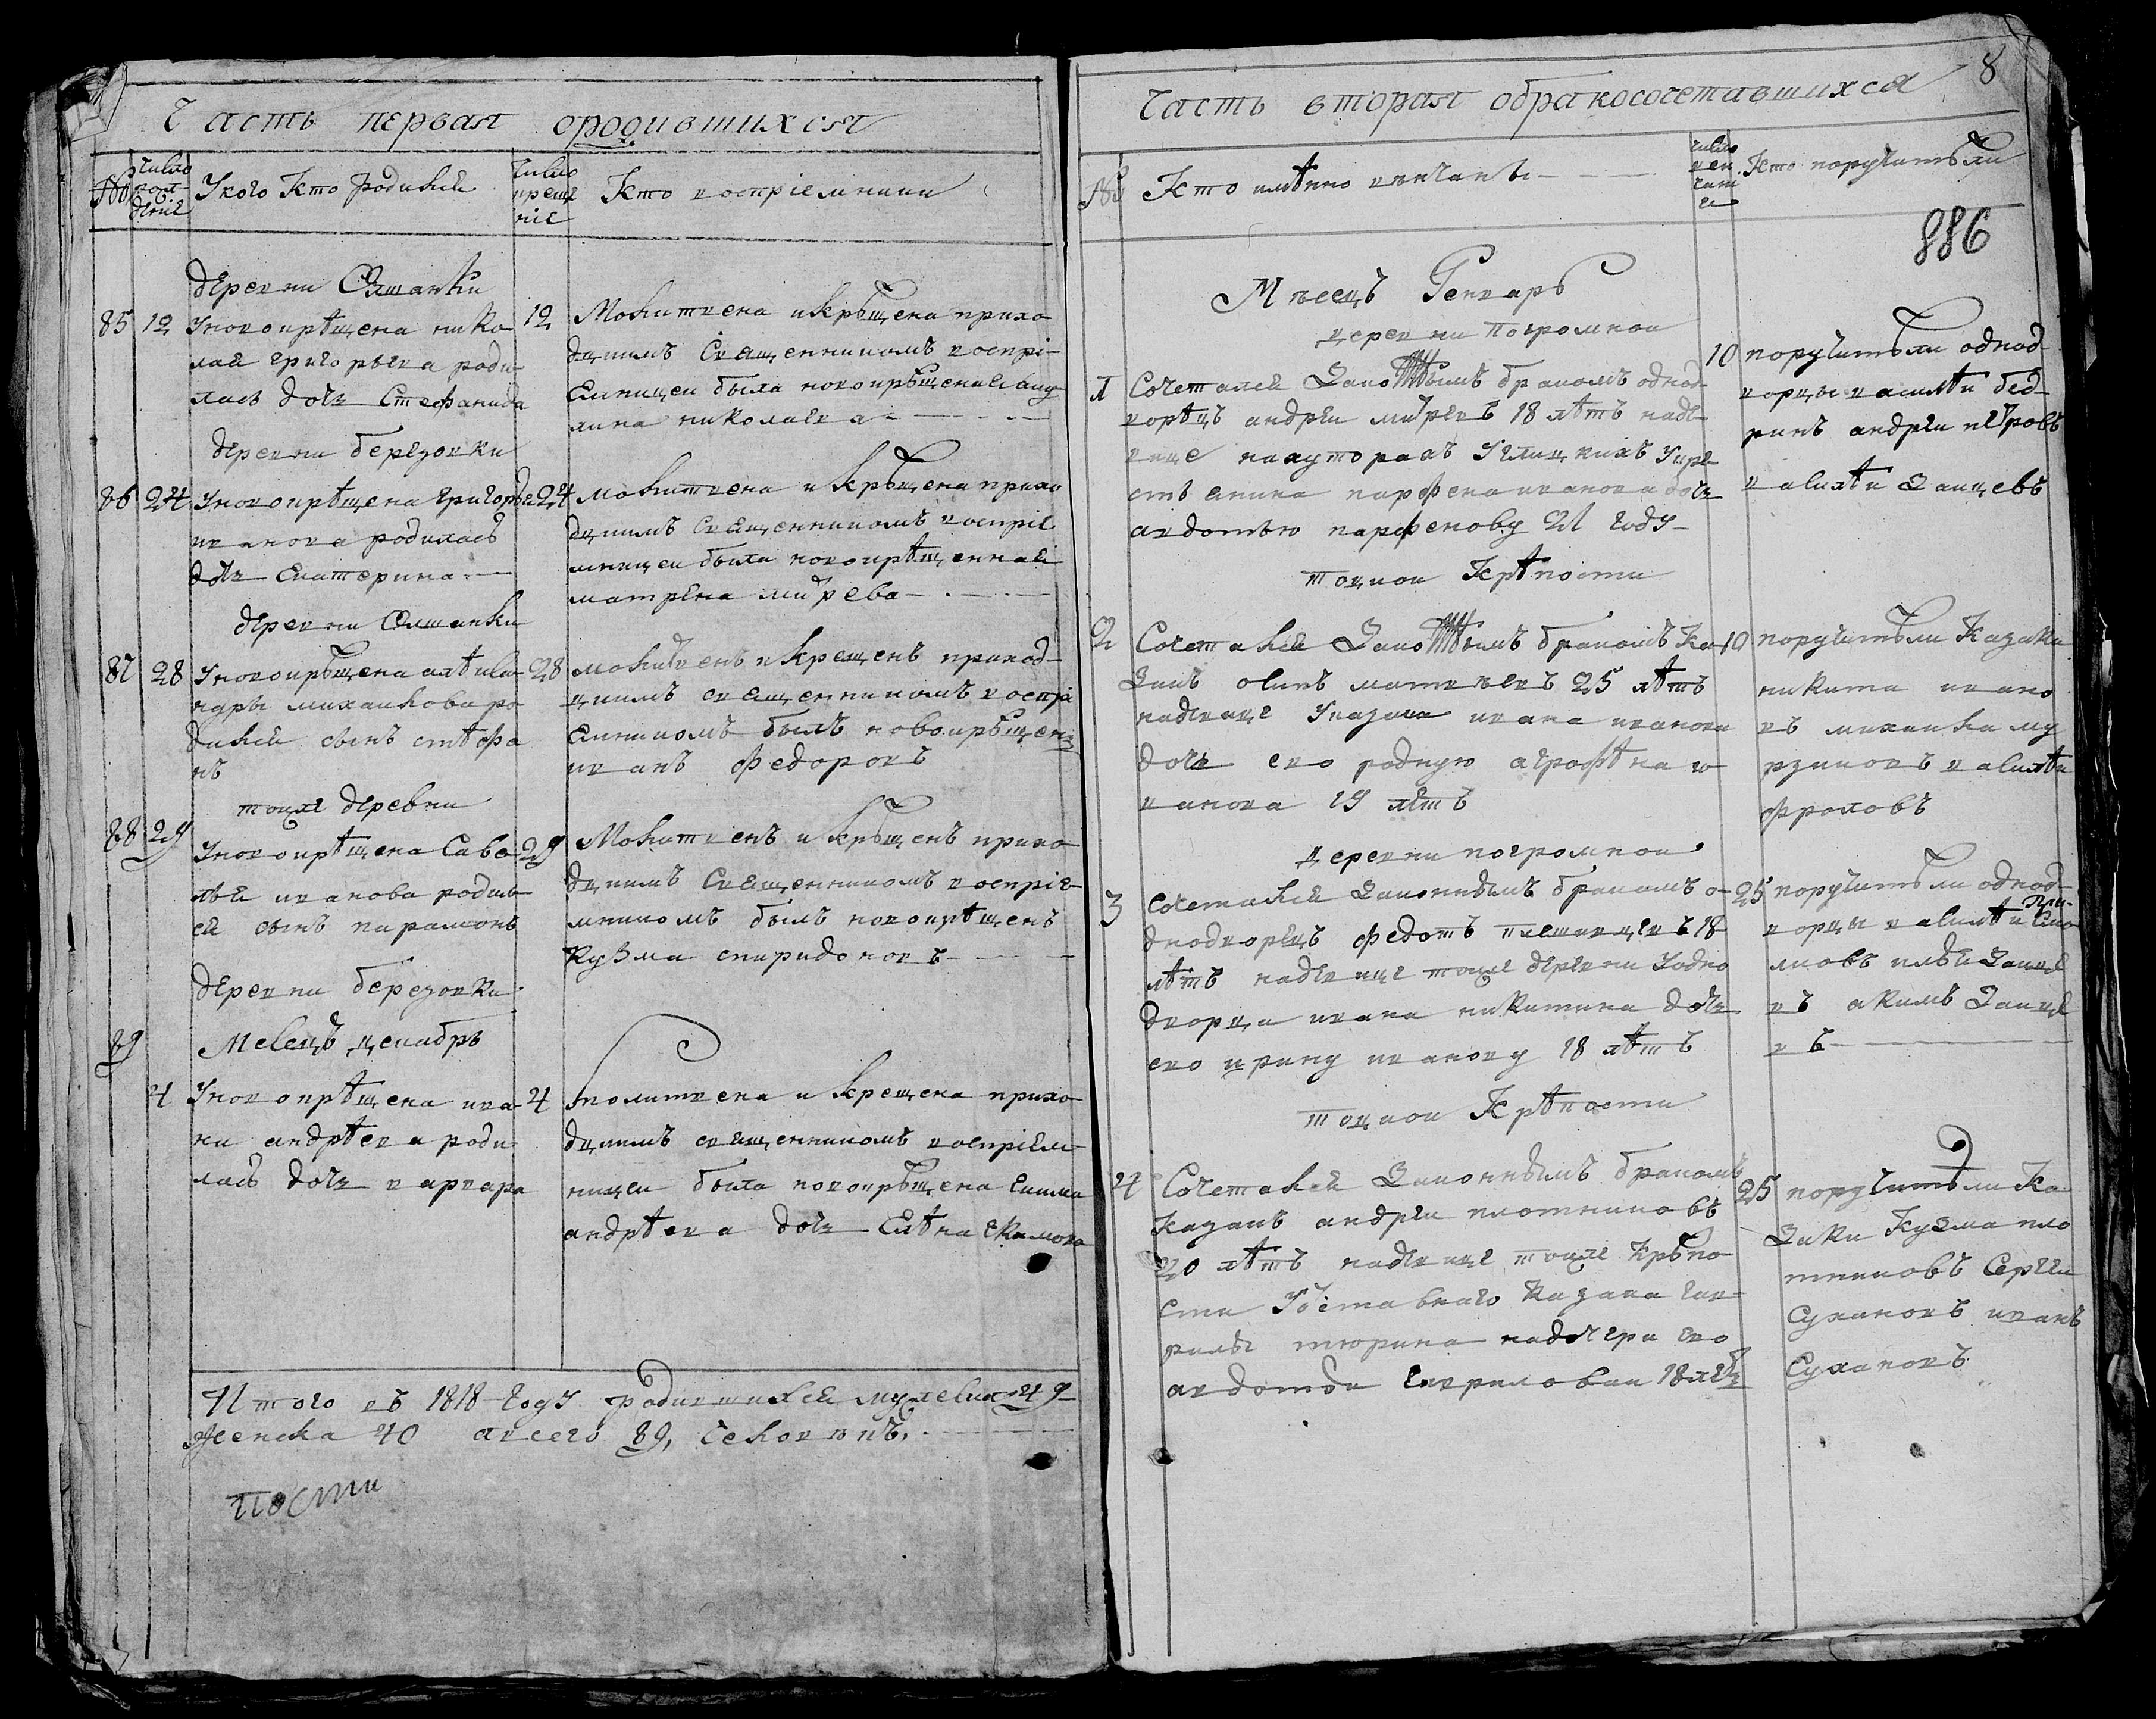 Часть первая ородившихся
№
число рож-
деніе
Укого Кто родился
число
креще
ніе
Кто воспріемники
деревни Олшанки
85 12 Уновокрѣщена нико
лая григорьева роди
лась дочь Стефанида
12 Молитвена икрѣщена прихо
дцкимъ Священникомъ воспрі
емницеи была новокрѣщеная аку
лина николаева
деревни березовки
86 24 Уновокрѣщена григорья
иванова родилась
дочь Екатерина
24 молитвена и крѣщена прихо
дцкимъ Священникомъ воспріе
мницеи была новокрѣщенная
матрена
деревни Олшанки
87 28 Уновокрѣщена алѣкса
ндры михаилова ро
дился сынъ стѣфа
нъ
28 молитвенъ и крещенъ приход
цкимъ священникомъ воспрі
емникомъ былъ новокрѣщенъ
иванъ федоровъ
тоиже деревни
88 29 Уновокрѣщена Саве
лья иванова родил
ся сынъ парамонъ
29 Молитвенъ и крѣщенъ прихо
дцкимъ Священникомъ воспріе
мникомъ былъ новокрѣщенъ
Кузма спиридоновъ
деревни березовки
89 Месецъ декабрь
4 Уновокрѣщена ива
на андрѣева роди
лась дочь варвара
4 молитвена и крещена прихо
дцкимъ священникомъ воспріем
ницеи была новокрѣщена екима
андрѣева дочь Елѣна екимова
Итого въ 1818 году родившихся мужеска 49
женска 40 авсего 89, человѣкъ.
по сти
8
Часть вторая обракосочетавшихся
№ Кто имѣнно венчанъ
число
вен
чані
я
Кто поручитѣли
886
Мѣсецъ Генварь
деревни погромнои
1 Сочетался Законнымъ бракомъ однод
ворѣцъ андреи 18 лѣтъ надѣ
вице нахуторахъ Углицкихъ Укре
стьянина парфена иванова дочь
авдотью парфенову 21 году
10 поручитѣли однод
ворцы василѣи бед
ринъ андреи пѣтровъ
василѣи Заицевъ
тоцкои Крѣпости
2 Сочетался Законнымъ бракомъ Ка
Закъ осипъ матвѣевъ 25 лѣтъ
надѣвице Указака ивана иванова
дочь его родную аграфѣна и
ванова 19 лѣтъ
10 поручитѣли Казаки
никита ивано
въ михаила му
рзиновъ василѣи
фроловъ
деревни погромнои
3 сочетался Законнымъ бракомъ о
днодворецъ федотъ плешивцевъ 18
лѣтъ надѣвице тоиже деревни Уодно
дворца ивана никитина дочь
его ирину иванову 18 лѣтъ
25 поручитѣли однод
ворцы василѣи
илья Заице
въ акимъ Заице
въ
тоцкои Крѣпости
4 Сочетался Законнымъ бракомъ
казакъ андреи плотниковъ
20 лѣтъ надѣвице тоиже Крѣпо
сти Уотставнаго казака гав
рилы тюрина надочери его
авдотьи гавриловаи 18 летъ
25 поручитѣли Ка
Заки Кузма пло
тниковъ Сергеи
Сухановъ иванъ
Сухановъ